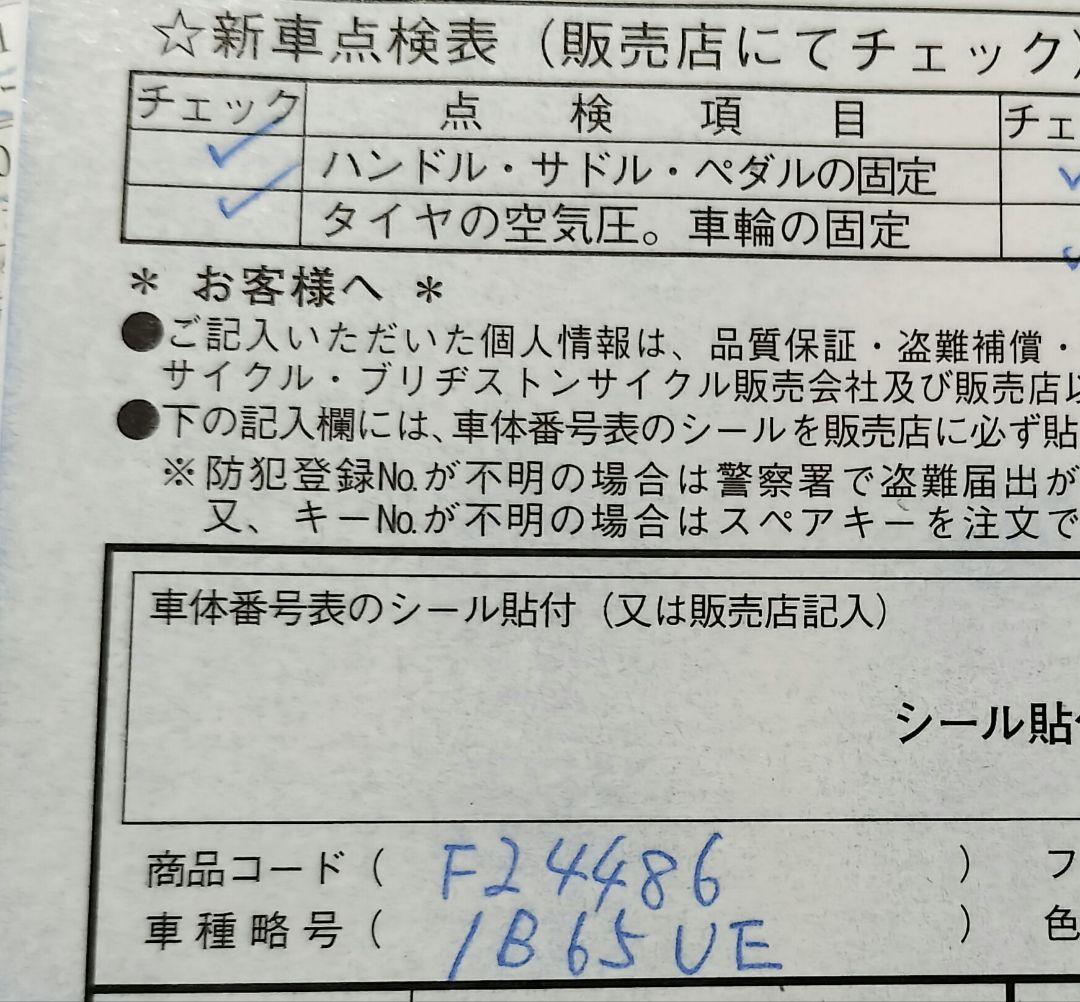 ☆新車点検表（販売店にてチェック）
チェック 点検項目 チェ
ハンドル・サドル・ペダルの固定
タイヤの空気圧。車輪の固定
＊ お客様へ ＊
●ご記入いただいた個人情報は、品質保証・盗難補償・
サイクル・ブリヂストンサイクル販売会社及び販売店以
●下の記入欄には、車体番号表のシールを販売店に必ず貼
※防犯登録No.が不明の場合は警察署で盗難届出が
又、キーNo.が不明の場合はスペアキーを注文で
車体番号表のシール貼付（又は販売店記入）
シール貼付
商品コード（ F24486 ） フ
車種略号（ 1B65UE ） 色